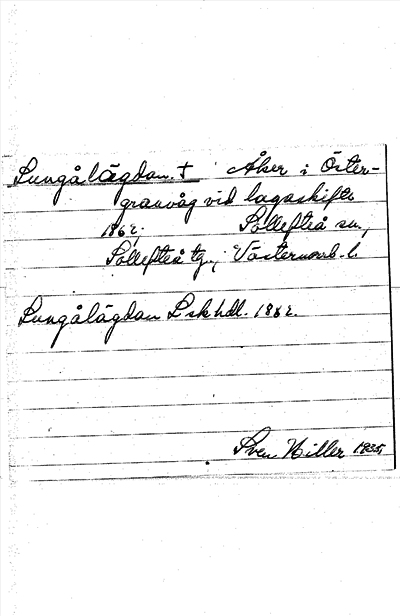 Lungålägdan. † Åker i Öster-
granvåg vid lagaskifte
1862. Sollefteå sn.,
Sollefteå tg., Västernorrl. l.
Lungålägdan L sk hdl. 1862.
Sven Hiller 1935